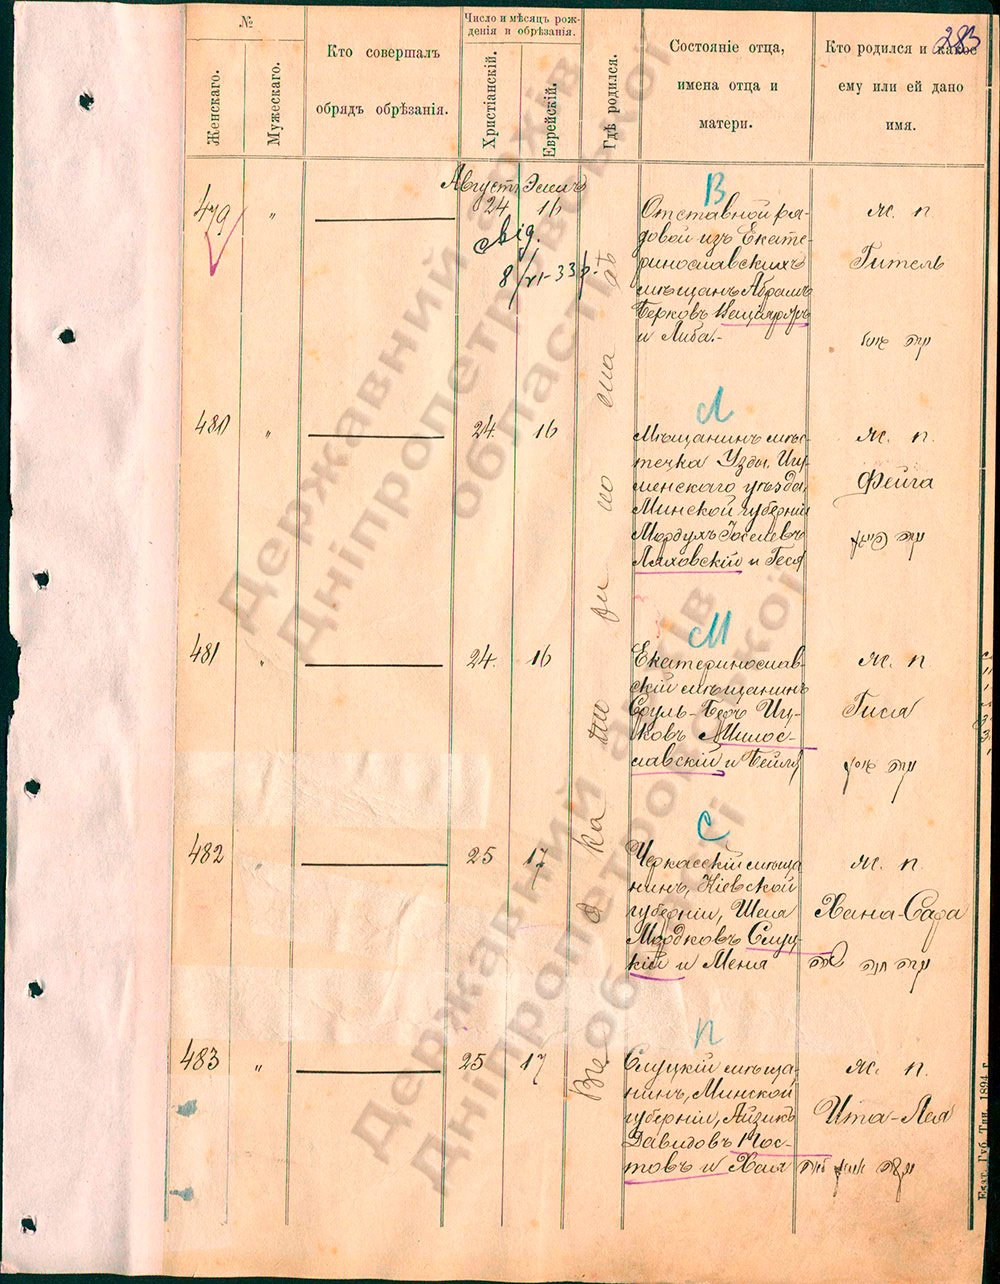 283
№
Женскаго.
Мужескаго.
Кто совершалъ
обрядъ обрѣзанія.
Число и мѣсяцъ рож-
денія и обрѣзанія.
Христіанскій.
Еврейскій.
Гдѣ родился.
Состояніе отца,
имена отца и
матери.
Кто родился и какое
ему или ей дано
имя.
479 „
Августъ
24 16
свід.
8/VI-33р.
В
Отставной ря-
довой изъ Екате-
ринославскихъ
мѣщанъ Абрамъ
Берковъ
и Либа.-
ж. п.
Гитель
480 „
24. 16
Л
Мѣщанинъ мѣс-
течка Узды Игу-
менскаго уѣзда,
Минской губерніи
Мордухъ Іоселевъ
Ляховскій и Геся
ж. п.
Фейга
481 „
24. 16
М
Екатеринослав-
скій мѣщанинъ
Сруль-Беръ Иц-
ковъ Милос-
лавскій и Бейля
ж. п.
Гися
482 „
25 17
С
Черкасскій мѣща
нинъ, Кіевской
губерніи, Шея
Мордковъ Слуц-
кій и Меня
ж. п.
Хана-Сара
483 „
25 17
П
Слуцкій мѣща-
нинъ, Минской
губерніи, Айзикъ
Давидовъ
и Хая
ж. п.
Ита-Лея
Екат. Губ. Тип. 1894 г.
Державний архів
Дніпропетровської
області
Державний архів
Дніпропетровської
області